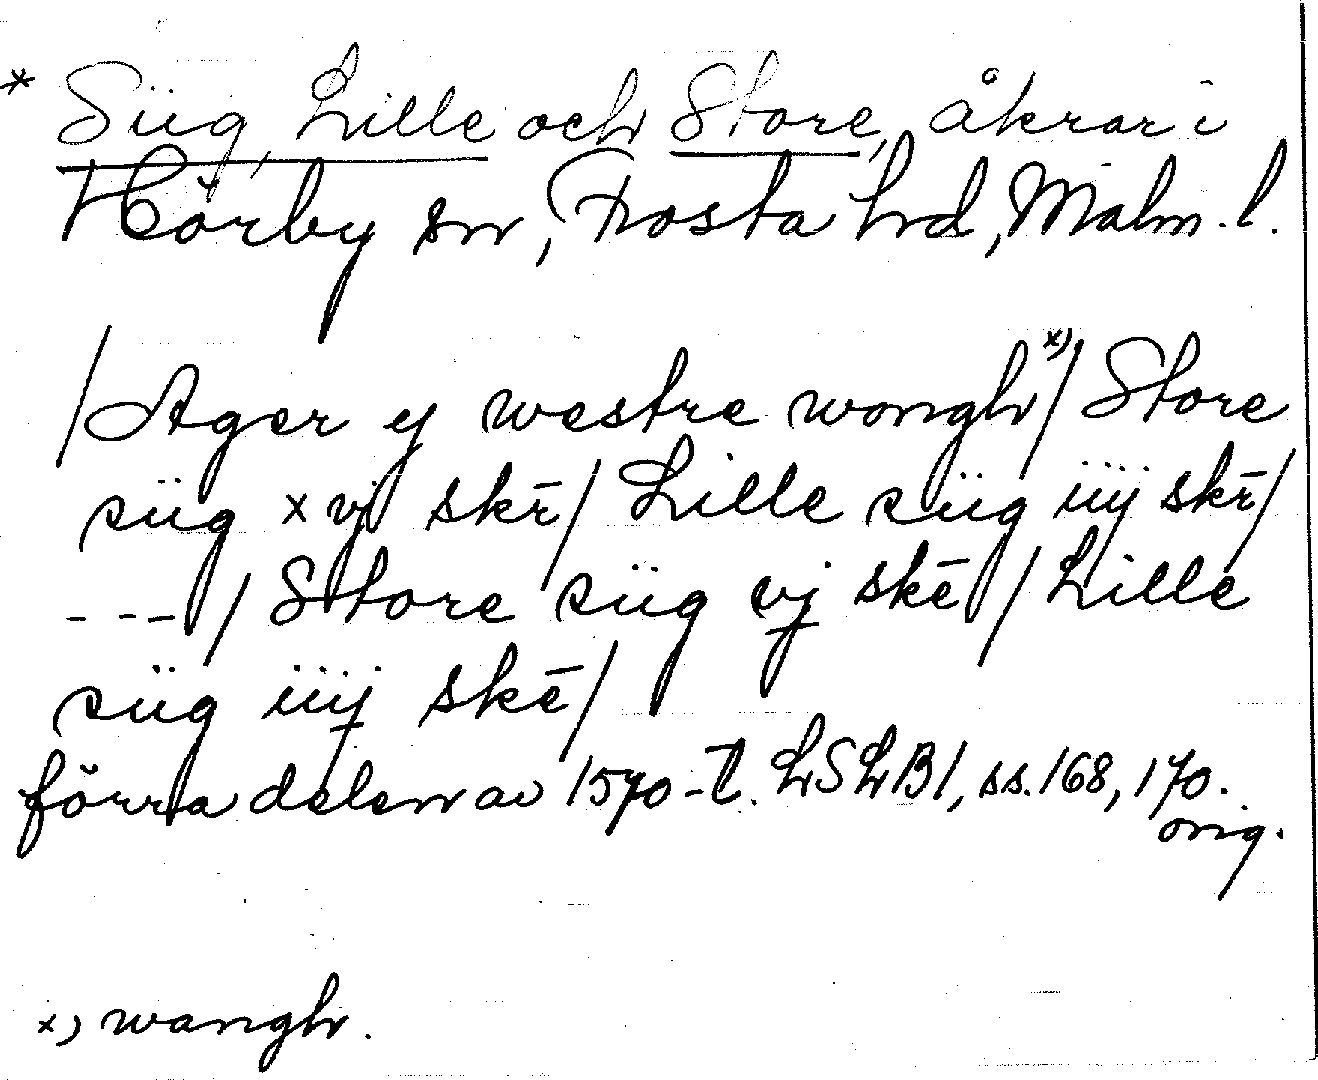 * Süg, Lille och Store, åkrar i
Hörby sn, Frosta hd, Malm. l.
/Ager y westre wongh x)/ Store
süg xvj skē/ Lille süg iiij skē/
---/ Store süg vj skē/ Lille
süg iiij skē/
förra delen av 1570-t. LSLB1, ss. 168, 170.
orig.
x) wangh.